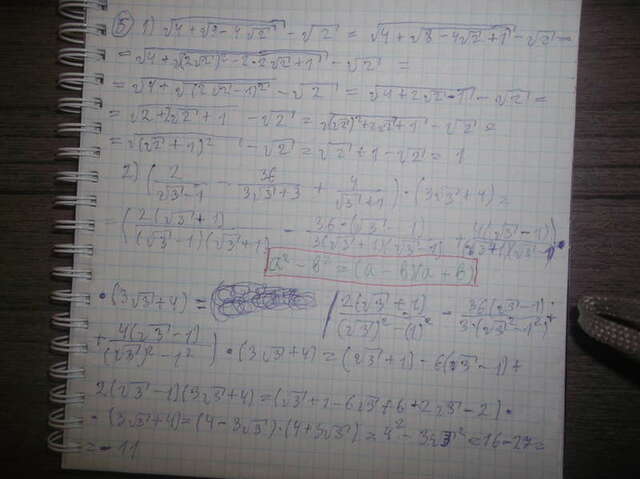 5 1) √(4 + √(9 - 4√2)) - √2 = √(4 + √(8 - 4√2 + 1)) - √2 =
= √(4 + √((2√2)² - 2·2√2 + 1)) - √2 =
= √(4 + √((2√2 - 1)²)) - √2 = √(4 + 2√2 - 1) - √2 =
= √(2 + 2√2 + 1) - √2 = √((√2)² + 2√2 + 1) - √2 =
= √((√2 + 1)²) - √2 = √2 + 1 - √2 = 1
2) (2/(√3 - 1) - 36/(3√3 + 3) + 4/(√3 + 1)) · (3√3 + 4) =
= (2(√3 + 1)/((√3 - 1)(√3 + 1)) - 36·(√3 - 1)/(3(√3 + 1)(√3 - 1)) + 4(√3 - 1)/((√3 + 1)(√3 - 1))) ·
a² - b² = (a - b)(a + b)
· (3√3 + 4) = (2(√3 + 1)/((√3)² - (1)²) - 36(√3 - 1)/(3·(√3² - 1²)) +
+ 4(√3 - 1)/((√3)² - 1²)) · (3√3 + 4) = (√3 + 1) - 6(√3 - 1) +
2(√3 - 1)(3√3 + 4) = (√3 + 1 - 6√3 + 6 + 2√3 - 2) ·
· (3√3 + 4) = (4 - 3√3) · (4 + 3√3) = 4² - 3√3² = 16 - 27 =
= - 11